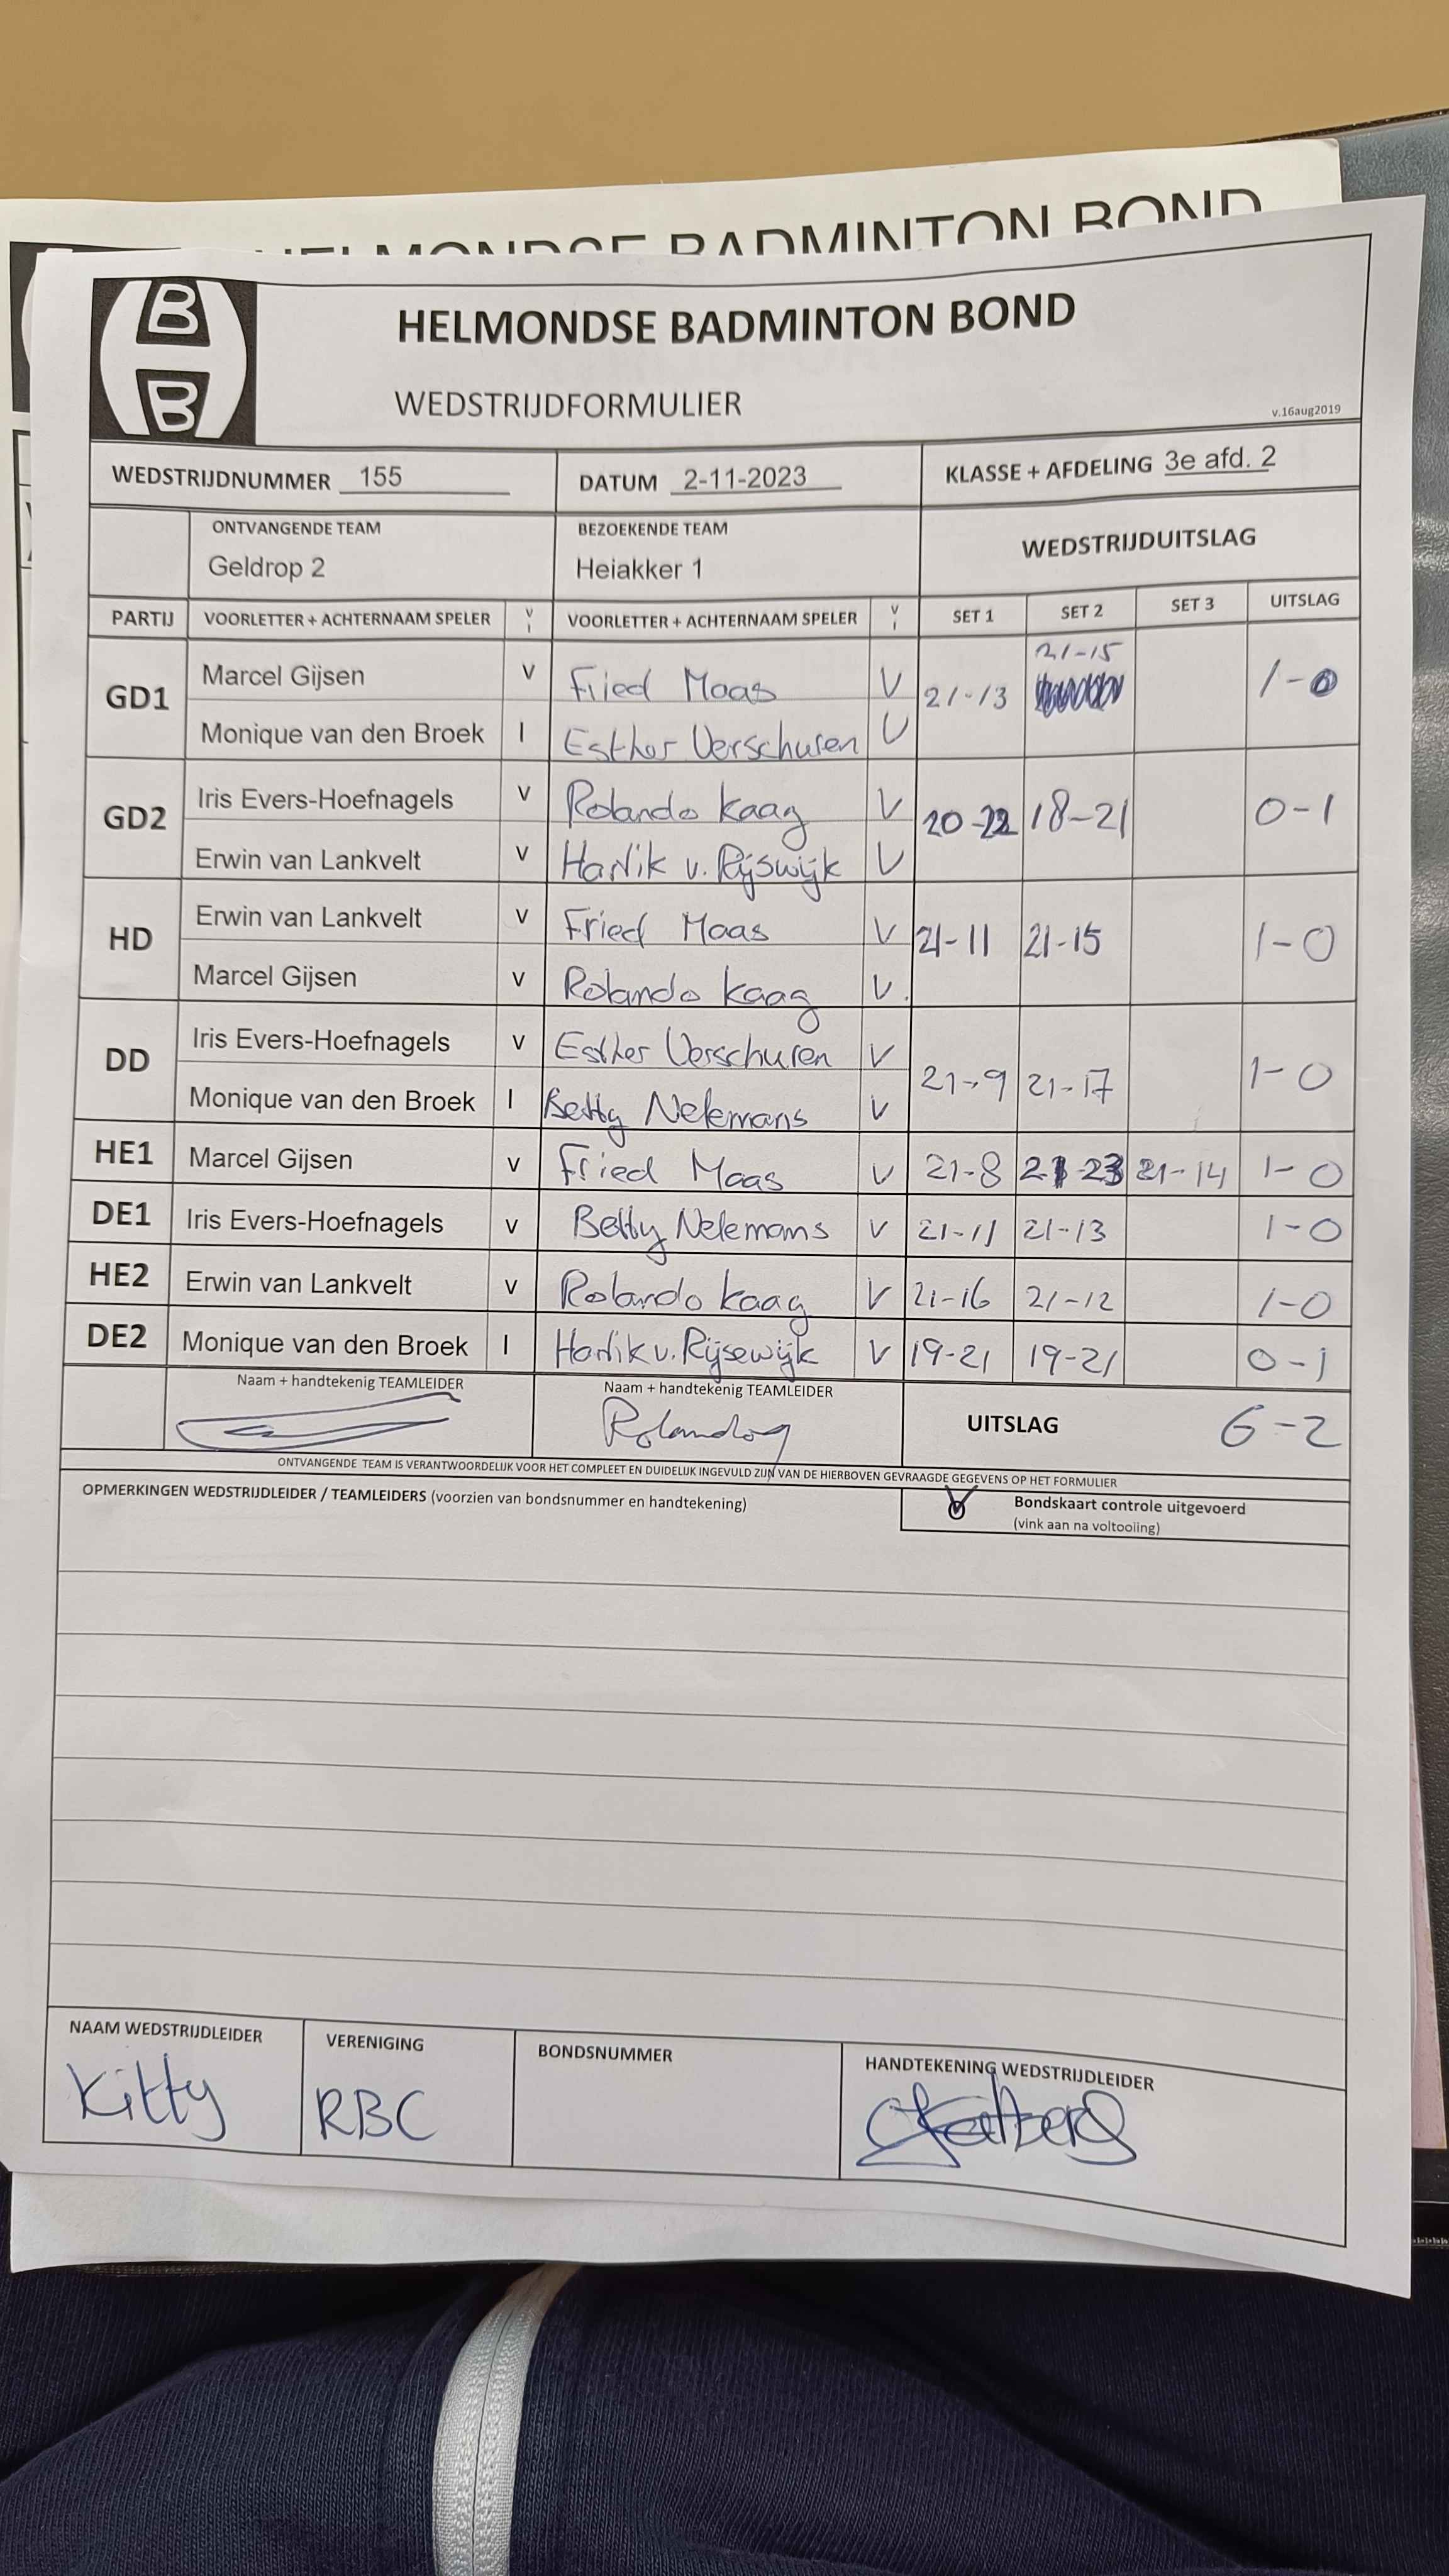 HELMONDSE BADMINTON BOND
B
B
HELMONDSE BADMINTON BOND
WEDSTRIJDFORMULIER
v.16aug2019
WEDSTRIJDNUMMER 155 DATUM 2-11-2023 KLASSE + AFDELING 3e afd. 2
ONTVANGENDE TEAM BEZOEKENDE TEAM WEDSTRIJDUITSLAG
Geldrop 2 Heiakker 1
PARTIJ VOORLETTER + ACHTERNAAM SPELER V I VOORLETTER + ACHTERNAAM SPELER V I SET 1 SET 2 SET 3 UITSLAG
GD1 Marcel Gijsen V Fried Maas V 21-13 21-15 1-0
Monique van den Broek I Esther Verschuren V
GD2 Iris Evers-Hoefnagels V Rolando Kaag V 20-22 18-21 0-1
Erwin van Lankvelt V v. Rijswijk V
HD Erwin van Lankvelt V Fried Maas V 21-11 21-15 1-0
Marcel Gijsen V Rolando Kaag V.
DD Iris Evers-Hoefnagels V Esther Verschuren V 21-9 21-17 1-0
Monique van den Broek I Betty Nelemans V
HE1 Marcel Gijsen V Fried Maas V 21-8 21-23 21-14 1-0
DE1 Iris Evers-Hoefnagels V Betty Nelemans V 21-11 21-13 1-0
HE2 Erwin van Lankvelt V Rolando Kaag V 21-16 21-12 1-0
DE2 Monique van den Broek I v. Rijsewijk V 19-21 19-21 0-1
Naam + handtekenig TEAMLEIDER Naam + handtekenig TEAMLEIDER UITSLAG 6-2
ONTVANGENDE TEAM IS VERANTWOORDELIJK VOOR HET COMPLEET EN DUIDELIJK INGEVULD ZIJN VAN DE HIERBOVEN GEVRAAGDE GEGEVENS OP HET FORMULIER
OPMERKINGEN WEDSTRIJDLEIDER / TEAMLEIDERS (voorzien van bondsnummer en handtekening)
V Bondskaart controle uitgevoerd
(vink aan na voltooiing)
NAAM WEDSTRIJDLEIDER VERENIGING BONDSNUMMER HANDTEKENING WEDSTRIJDLEIDER
Kitty RBC